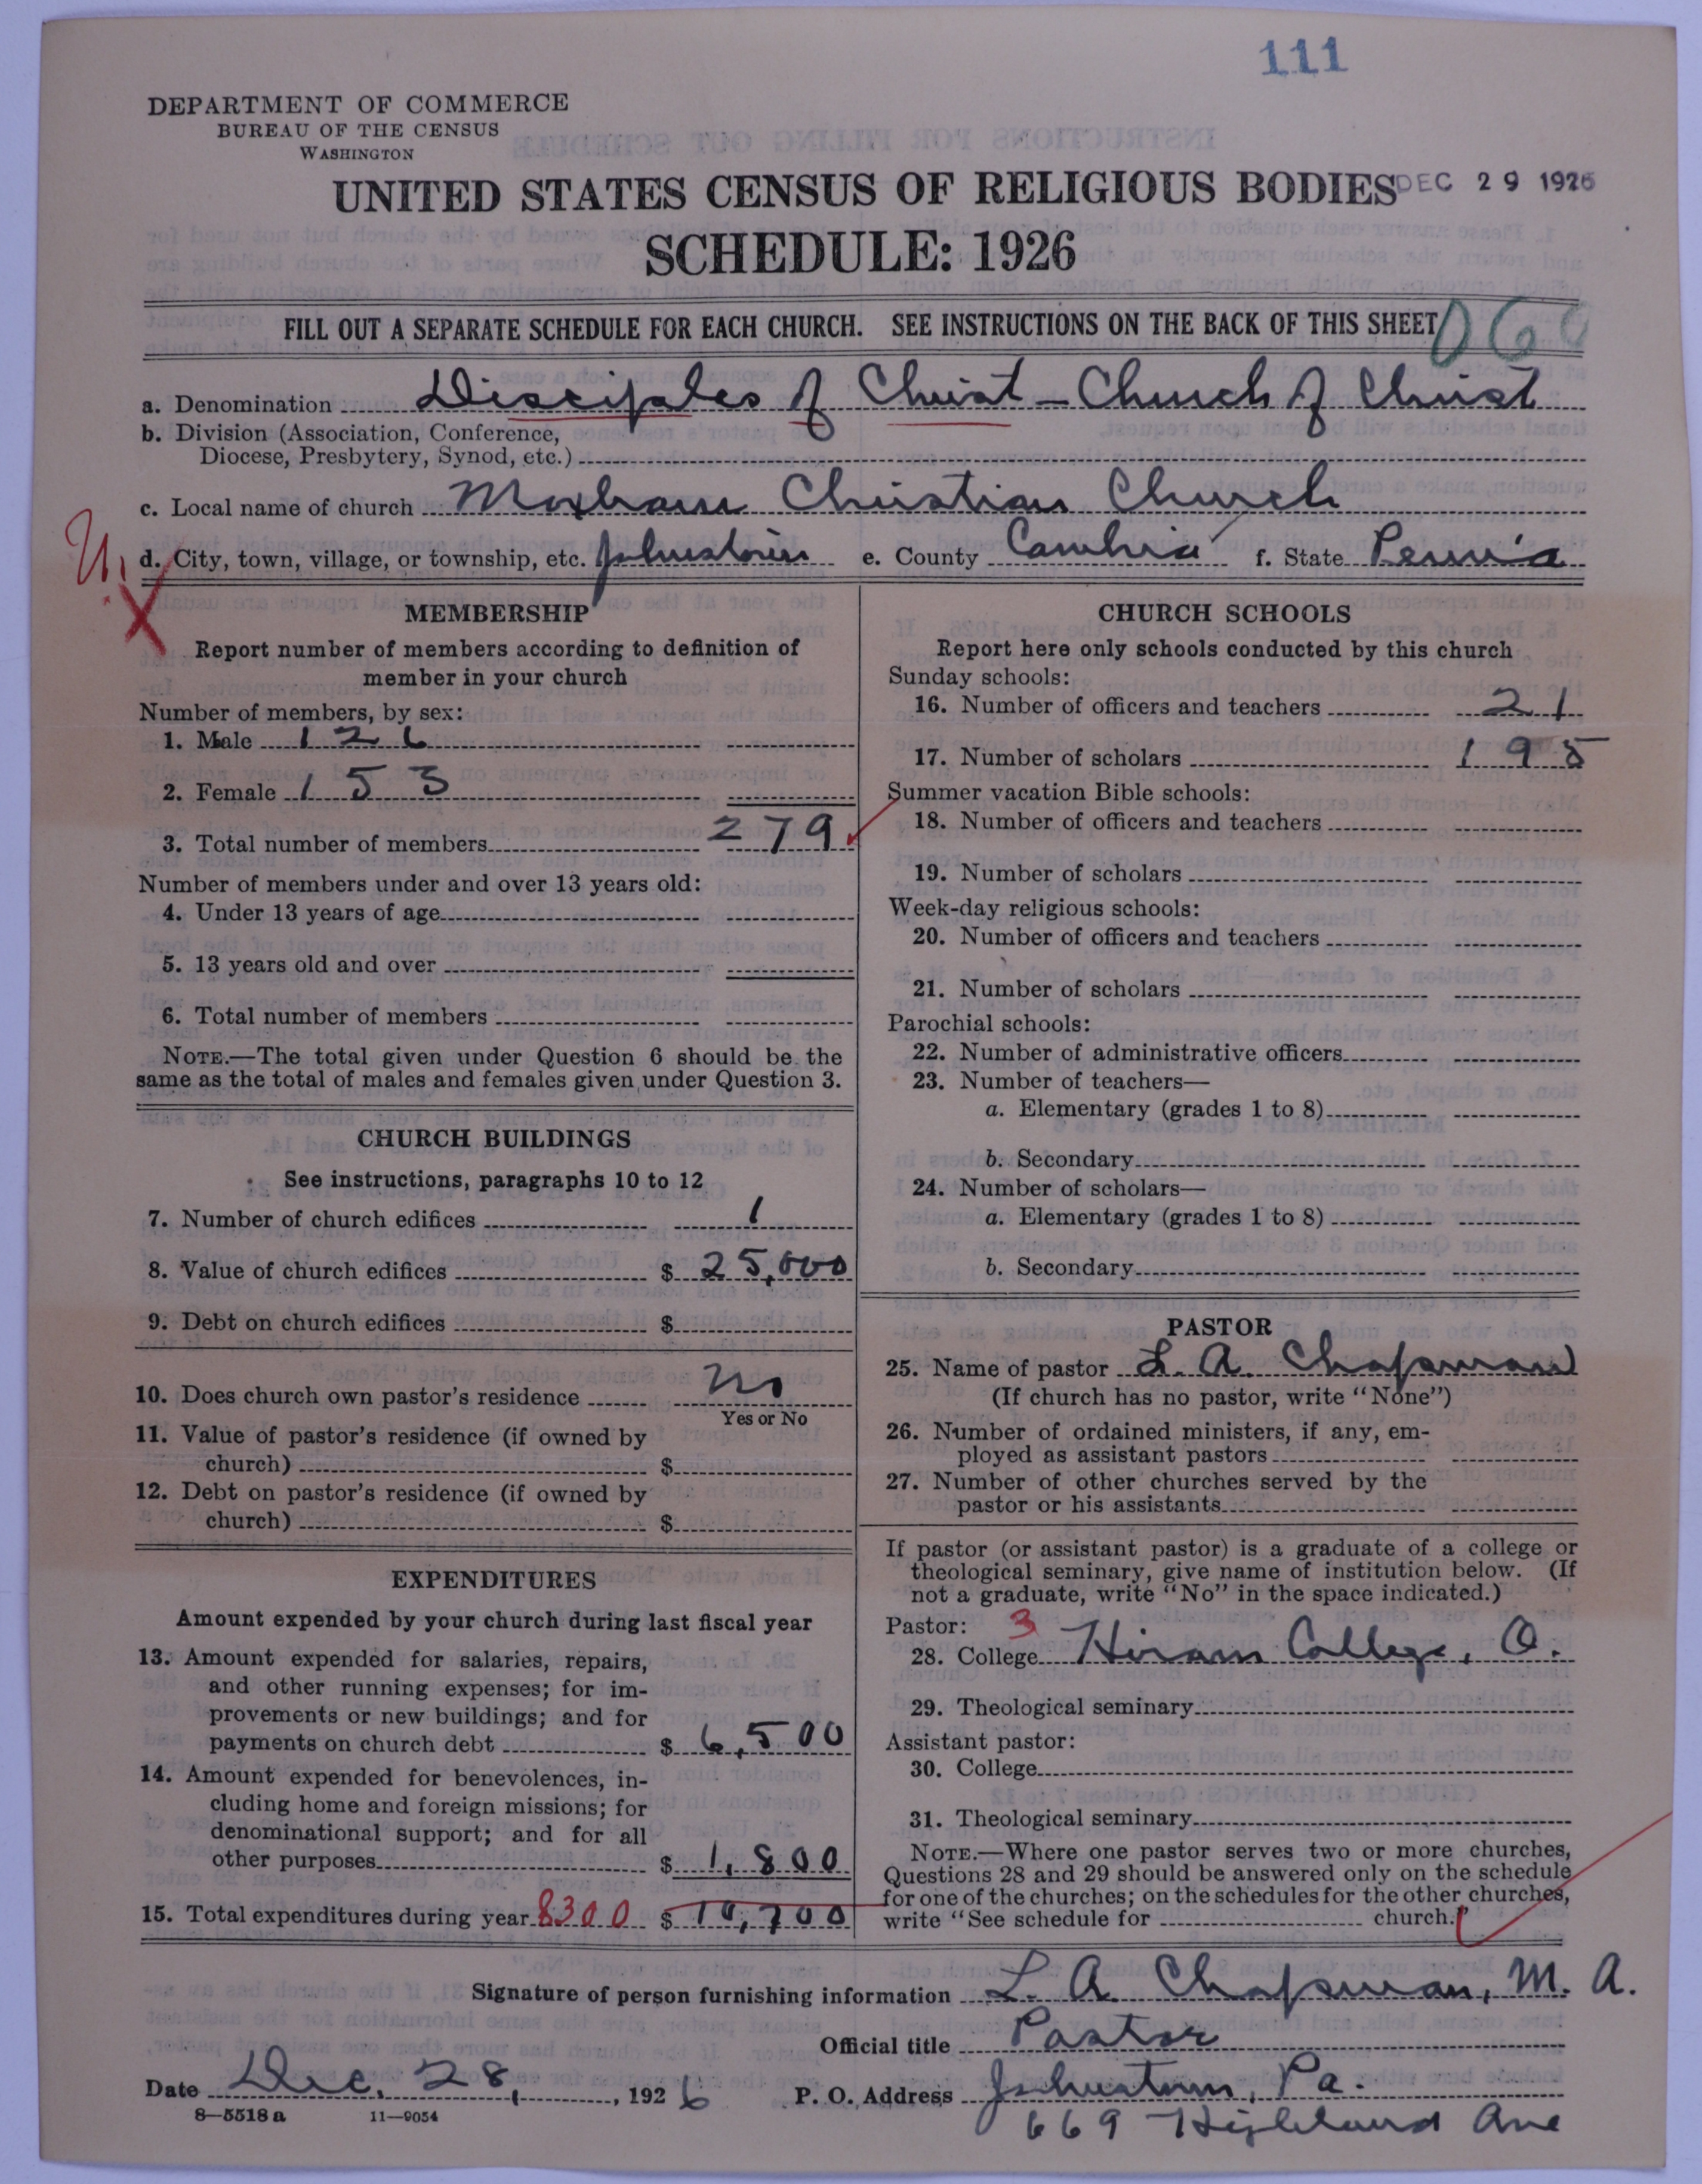 111
DEPARTMENT OF COMMERCE
BUREAU OF THE CENSUS
WASHINGTON
UNITED STATES CENSUS OF RELIGIOUS BODIES DEC 29 1926
SCHEDULE: 1926
FILL OUT A SEPARATE SCHEDULE FOR EACH CHURCH. SEE INSTRUCTIONS ON THE BACK OF THIS SHEET
a. Denomination Disciples of Christ - Church of Christ
b. Division (Association, Conference,
Diocese, Presbytery, Synod, etc.)
c. Local name of church Moxham Christian Church
U.
d. City, town, village, or township, etc. Johnstown e. County Cambria f. State Penn'a
X
MEMBERSHIP
Report number of members according to definition of
member in your church
Number of members, by sex:
1. Male 126
2. Female 153
3. Total number of members 279
Number of members under and over 13 years old:
4. Under 13 years of age
5. 13 years old and over
6. Total number of members
NOTE.—The total given under Question 6 should be the
same as the total of males and females given under Question 3.
CHURCH BUILDINGS
See instructions, paragraphs 10 to 12
7. Number of church edifices 1
8. Value of church edifices $ 25,000
9. Debt on church edifices $
10. Does church own pastor's residence No
Yes or No
11. Value of pastor's residence (if owned by
church) $
12. Debt on pastor's residence (if owned by
church) $
EXPENDITURES
Amount expended by your church during last fiscal year
13. Amount expended for salaries, repairs,
and other running expenses; for im-
provements or new buildings; and for
payments on church debt $ 6,500
14. Amount expended for benevolences, in-
cluding home and foreign missions; for
denominational support; and for all
other purposes $ 1,800
15. Total expenditures during year 8300 $ 10,700
CHURCH SCHOOLS
Report here only schools conducted by this church
Sunday schools:
16. Number of officers and teachers 21
17. Number of scholars 195
Summer vacation Bible schools:
18. Number of officers and teachers
19. Number of scholars
Week-day religious schools:
20. Number of officers and teachers
21. Number of scholars
Parochial schools:
22. Number of administrative officers
23. Number of teachers—
a. Elementary (grades 1 to 8)
b. Secondary
24. Number of scholars—
a. Elementary (grades 1 to 8)
b. Secondary
PASTOR
25. Name of pastor L. A. Chapman
(If church has no pastor, write "None")
26. Number of ordained ministers, if any, em-
ployed as assistant pastors
27. Number of other churches served by the
pastor or his assistants
If pastor (or assistant pastor) is a graduate of a college or
theological seminary, give name of institution below. (If
not a graduate, write "No" in the space indicated.)
Pastor: 3
28. College Hiram College, O.
29. Theological seminary
Assistant pastor:
30. College
31. Theological seminary
NOTE.—Where one pastor serves two or more churches,
Questions 28 and 29 should be answered only on the schedule
for one of the churches; on the schedules for the other churches,
write "See schedule for church."
Signature of person furnishing information L. A. Chapman, M. A.
Official title Pastor
Date Dec. 28, 1926 P. O. Address Johnstown, Pa.
8—5518 a 11—9054
669 Highland Ave